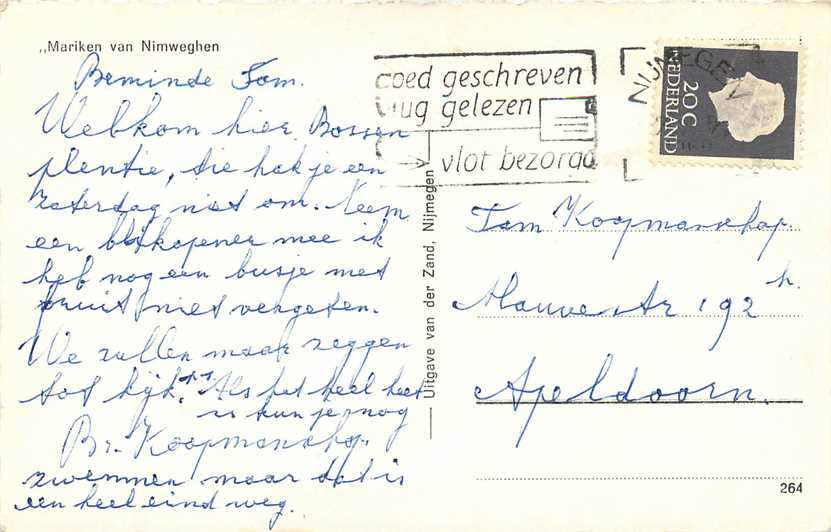 „Mariken van Nimweghen
Beminde Fam.
Welkom hier. Bossen
plentie, die hak je een
zaterdag niet om. Neem
een blikopener mee ik
heb nog een busje met
fruit niet vergeten.
We zullen maar zeggen
tot kijk. Als het heel heet
is kun je nog
Br. Koopmanschap.
zwemmen maar dat is
een heel eind weg.
Uitgave van der Zand, Nijmegen
goed geschreven
vlug gelezen
vlot bezorgd
NIJMEGEN
NEDERLAND
20 C
Fam Koopmanschap.
Mauvestr 192 h.
Apeldoorn.
264